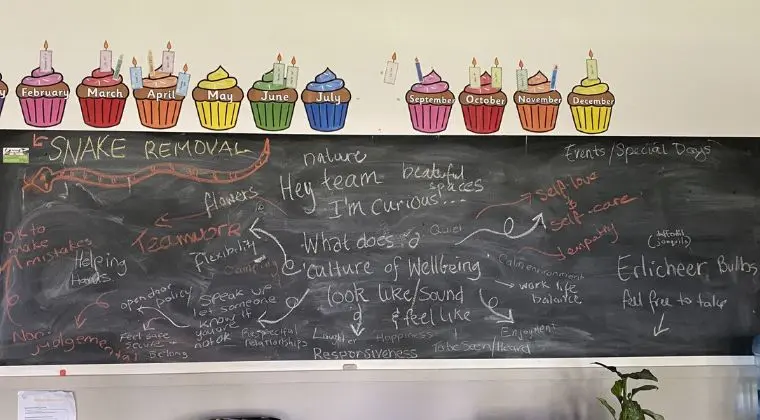 February
March
April
May
June
July
September
October
November
December
SNAKE REMOVAL
nature
Hey team
beateful
spaces
I'm curious...
Events/Special Days
flowers
Teamwork
Flexibility
Camping
OK to
make
mistakes
Helping
Hands.
Non-
judgemental
open door
policy
Feel safe
secure +
Belong
Speak up
let someone
know if
you're
not OK
Respectful
relationships
What does a
culture of Wellbeing
look like/Sound
& feel like
?
Quiet
Self-love
&
self-care
empathy
Calm environment
work life
balance
Laughter
Happiness
Responsiveness
To be Seen/Heard
Enjoyment
(daffodil
jonquils)
Erlicheer Bulbs
feel free to take